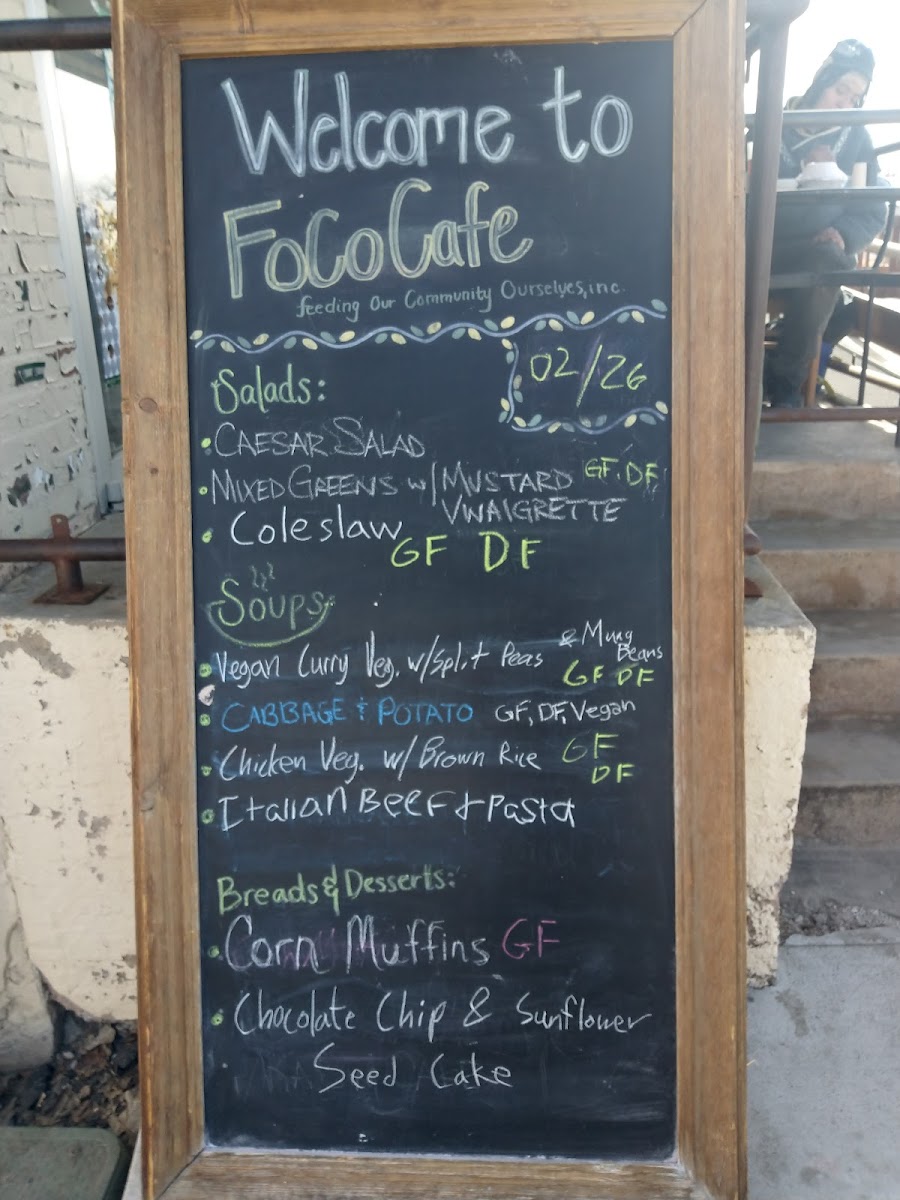 Welcome to
FoCo Cafe
feeding Our Community Ourselves, inc.
02/26
Salads:
• CAESAR SALAD
• MIXED GREENS w/ MUSTARD GF, DF
VINAIGRETTE
• Coleslaw
GF DF
Soups
• Vegan Curry Veg. w/Split Peas & Mung Beans
GF DF
• CABBAGE & POTATO GF, DF, Vegan
• Chicken Veg. w/ Brown Rice GF
DF
• Italian Beef & Pasta
Breads & Desserts:
• Corn Muffins GF
• Chocolate Chip & Sunflower
Seed Cake